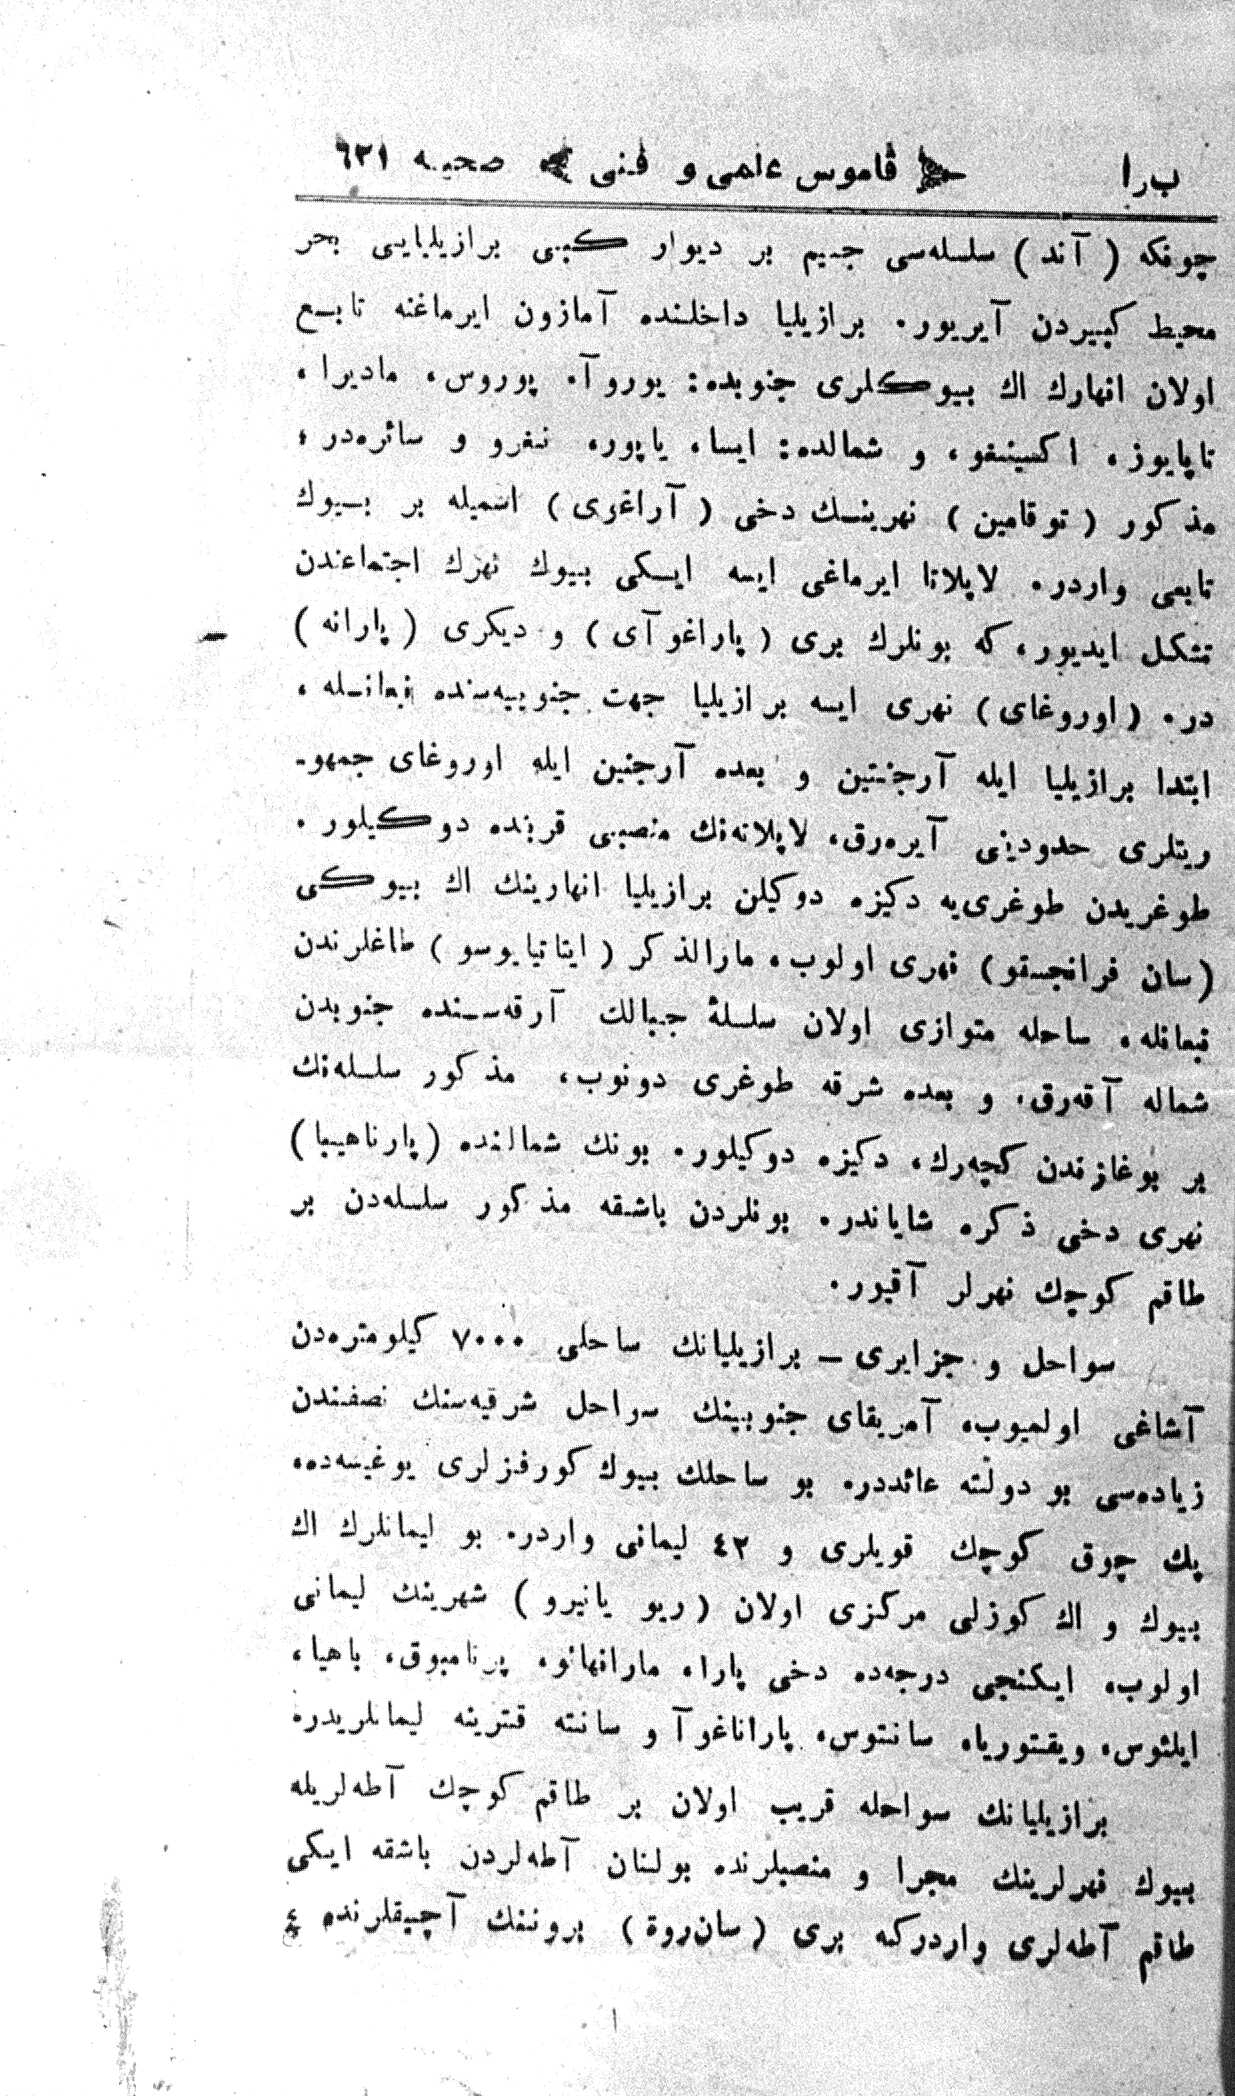 برا قاموس علمی و فنی صحیفه ٦٣١
چونكه ( آند ) سلسله‌سی جسیم بر دیوار كبی برازیلیایی بحر
محیط كبیردن آیریور. برازیلیا داخلنده آمازون ایرماغنه تابع
اولان انهارك اك بیوكلری جنوبده: یوروآ، پوروس، مادیرا،
تاپایوز، اكسینغو، و شمالده: ایسا، یاپور، نغرو و سائره‌در؛
مذكور ( توقامین ) نهرینك دخی ( آراغوی ) اسمیله بر بیوك
تابعی واردر. لاپلاتا ایرماغی ایسه ایكی بیوك نهرك اجتماعندن
تشكل ایدیور، كه بونلرك بری ( پاراغوآی ) و دیكری ( پارانه )
در. ( اوروغای ) نهری ایسه برازیلیا جهت جنوبیه‌سنده نبعانله،
ابتدا برازیلیا ایله آرجنتین و بعده آرجنین ایله اوروغای جمهو-
ریتلری حدودینی آیره‌رق، لاپلاته‌نك منصبی قربنده دوكیلور.
طوغریدن طوغری‌یه دكیزه دوكیلن برازیلیا انهارینك اك بیوكی
(سان فرانچسقو) نهری اولوب، مارالذكر ( ایتاتیایوسو ) طاغلرندن
نبعانله، ساحله متوازی اولان سلسلۀ جبالك آرقه‌سنده جنوبدن
شماله آقه‌رق، و بعده شرقه طوغری دونوب، مذكور سلسله‌نك
بر بوغازندن كچه‌رك، دكیزه دوكیلور. بونك شمالنده (پارناهیبا)
نهری دخی ذكره شایاندر. بونلردن باشقه مذكور سلسله‌دن بر
طاقم كوچك نهرلر آقیور.
سواحل و جزایری ــ برازیلیانك ساحلی ٧٠٠٠ كیلومتره‌دن
آشاغی اولمیوب، آمریقای جنوبینك سواحل شرقیه‌سنك نصفندن
زیاده‌سی بو دولته عائددر. بو ساحلك بیوك كورفزلری یوغیسه‌ده،
پك چوق كوچك قویلری و ٤٢ لیمانی واردر. بو لیمانلرك اك
بیوك و اك كوزلی مركزی اولان ( ریو یانیرو ) شهرینك لیمانی
اولوب، ایكنجی درجه‌ده دخی پارا، مارانهانو، پرنامبوق، باهیا،
ایلئوس، ویقتوریا، سانتوس، پاراناغوآ و سانته قترینه لیمانلریدر.
برازیلیانك سواحله قریب اولان بر طاقم كوچك آطه‌لریله
بیوك نهرلرینك مجرا و منصبلرنده بولنان آطه‌لردن باشقه ایكی
طاقم آطه‌لری واردركه بری ( سان‌روة ) بروننك آچیقلرنده ٤